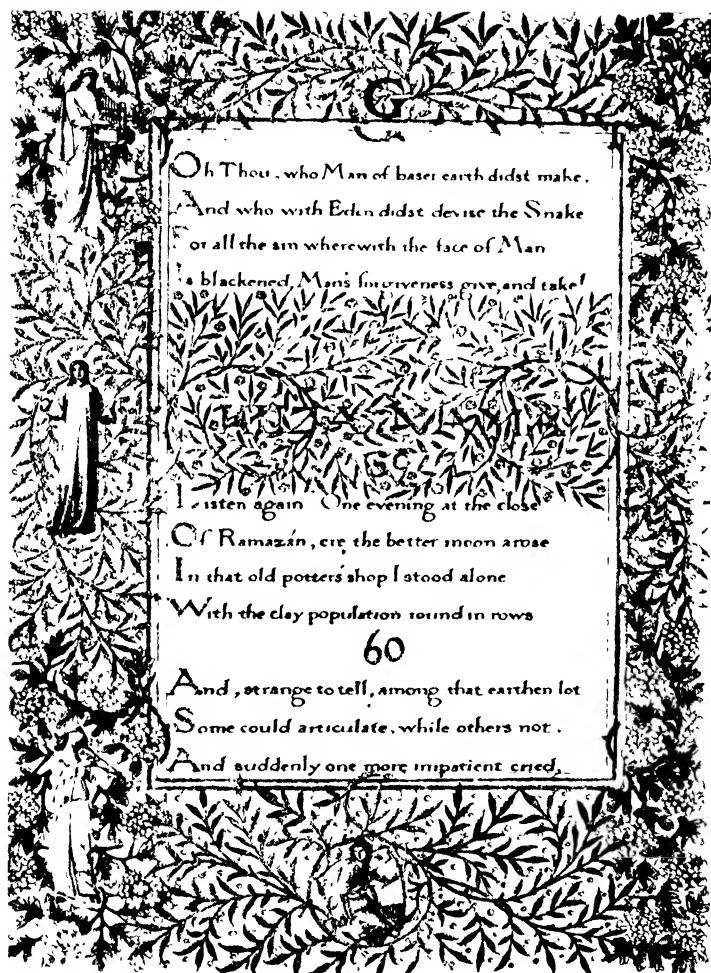 Oh Thou, who Man of baser earth didst make,
And who with Eden didst devise the Snake
For all the sin wherewith the face of Man
Is blackened, Man's forgiveness give, and take!
Listen again One evening at the close
Of Ramazán, ere the better moon arose
In that old potters' shop I stood alone
With the clay population round in rows
60
And, strange to tell, among that earthen lot
Some could articulate, while others not.
And suddenly one more impatient cried,